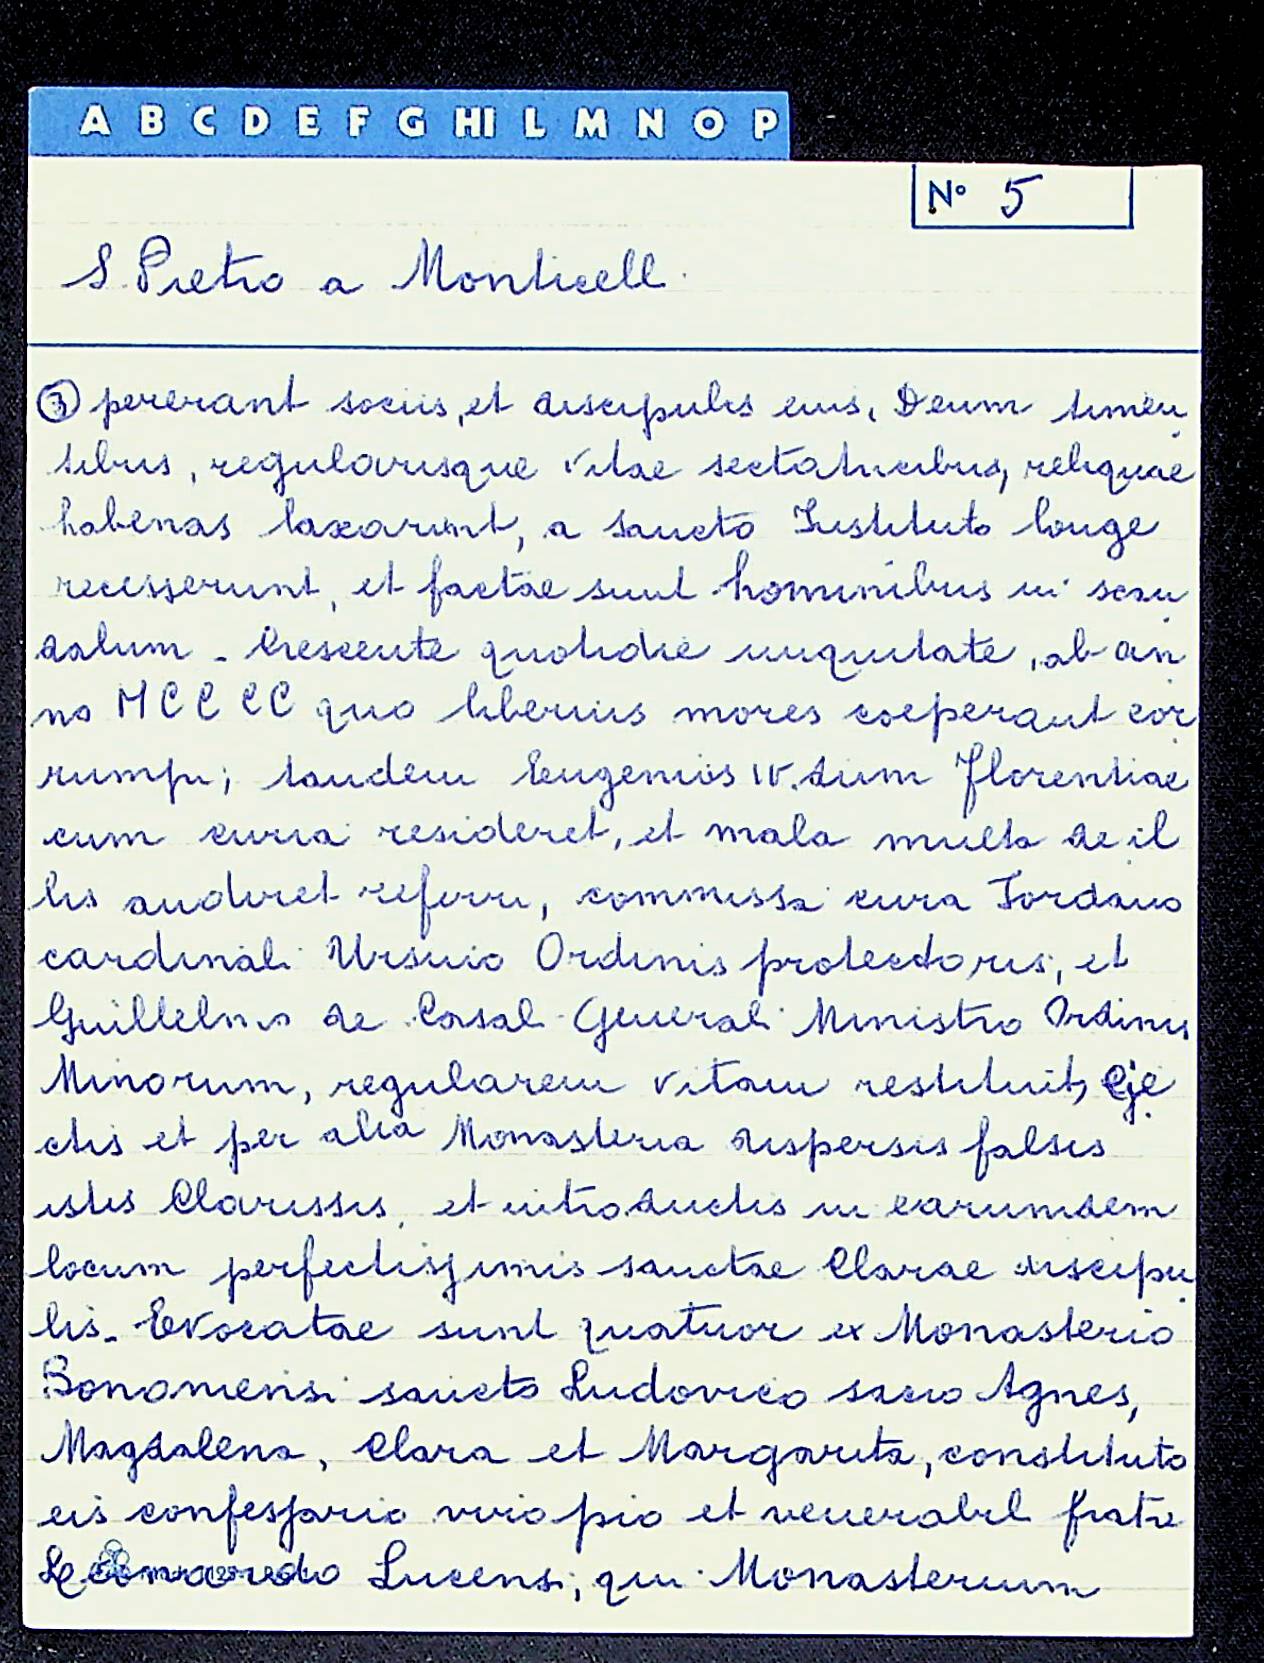 A B C D E F G HI L M N O P
N° 5
S. Pietro a Monticelli
③ pererant sociis, et discipulis eius, Deum timen
tibus, regularisque vitae sectatricibus, reliquae
habenas laxarunt, a sancto Instituto longe
recesserunt, et factae sunt hominibus in scan
dalum. Crescente quotidie iniquitate, ab an
no MCCCC quo liberius mores coeperant cor
rumpi; tandem Eugenius IV. dum Florentiae
cum curia resideret, et mala multa de il
lis audiret referri, commissa cura Jordano
cardinali Ursinio Ordinis protectoris, et
Guillelmo de Casali Generali Ministro Ordinis
Minorum, regularem vitam restituit, eje
ctis et per alia Monasteria dispersis falsis
istis Clarissis, et introductis in earumdem
locum perfectissimis sanctae Clarae discipu
lis. Evocatae sunt quatuor ex Monasterio
Bononiensi sancto Ludovico sacro Agnes,
Magdalena, Clara et Margarita, constituto
eis confessario viro pio et venerabili fratre
Leonardo Lucensi, qui Monasterium